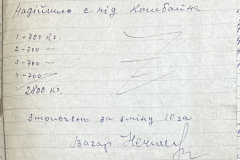 Надійшло с під Комбайна
1 - 700 кг.
2 - 700 —
3 - 700 —
4 - 700
2800 кг.
Змолочено за зміну 10 га
Вагар